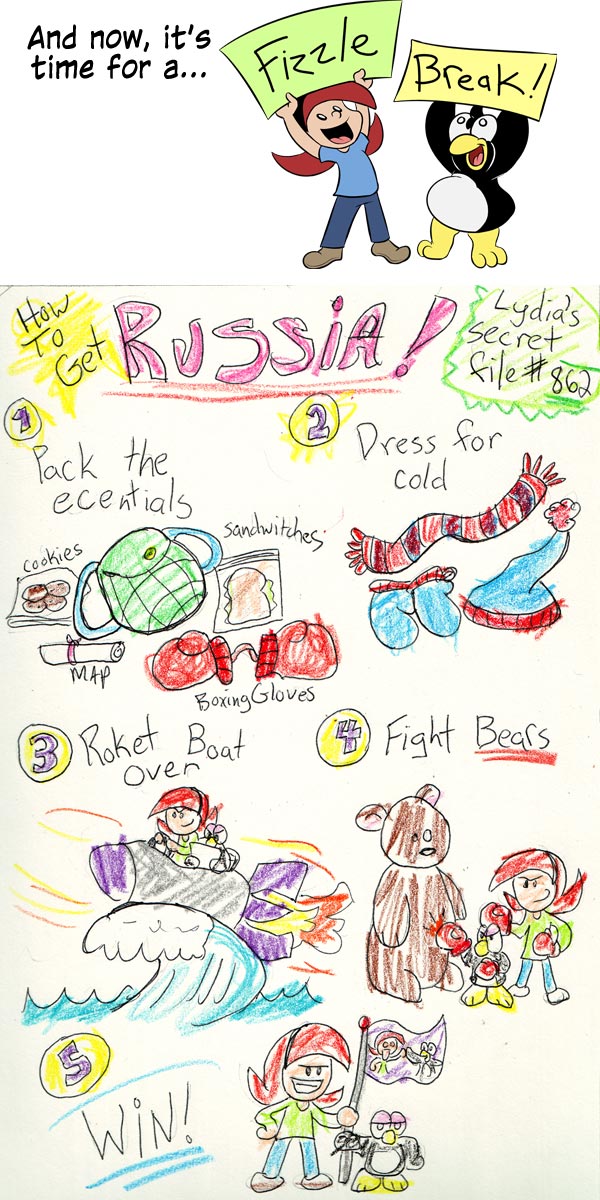 And now, it's
time for a...
Fizzle
Break!
How
To
Get
RUSSIA!
Lydia's
secret
file # 862
1
Pack the
ecentials
cookies
sandwitches
MAP
Boxing Gloves
2
Dress for
cold
3
Roket Boat
over
4
Fight Bears
5
WiN!